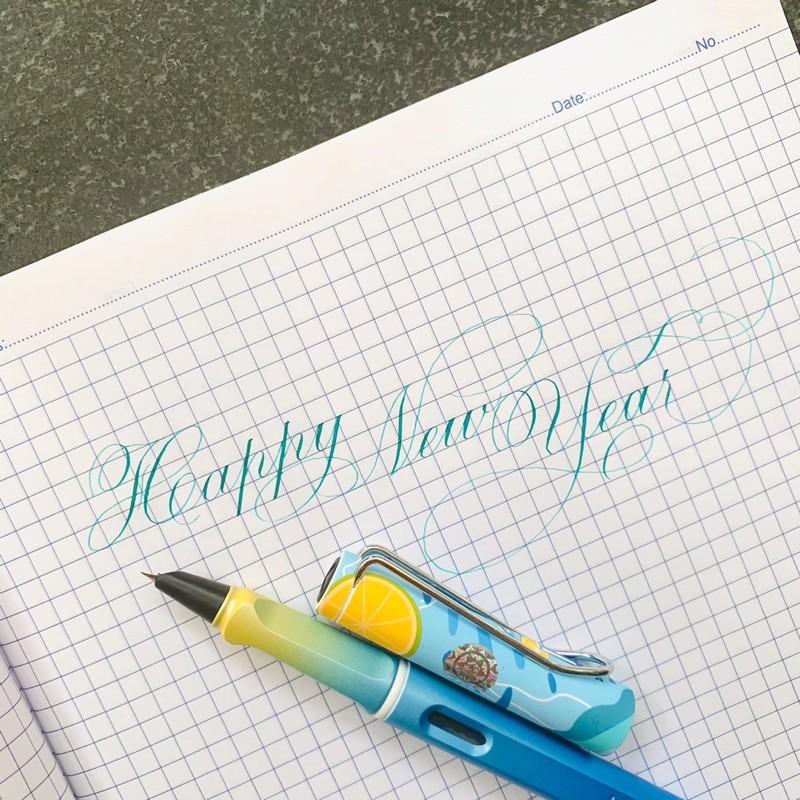 No.
Date:
Happy New Year